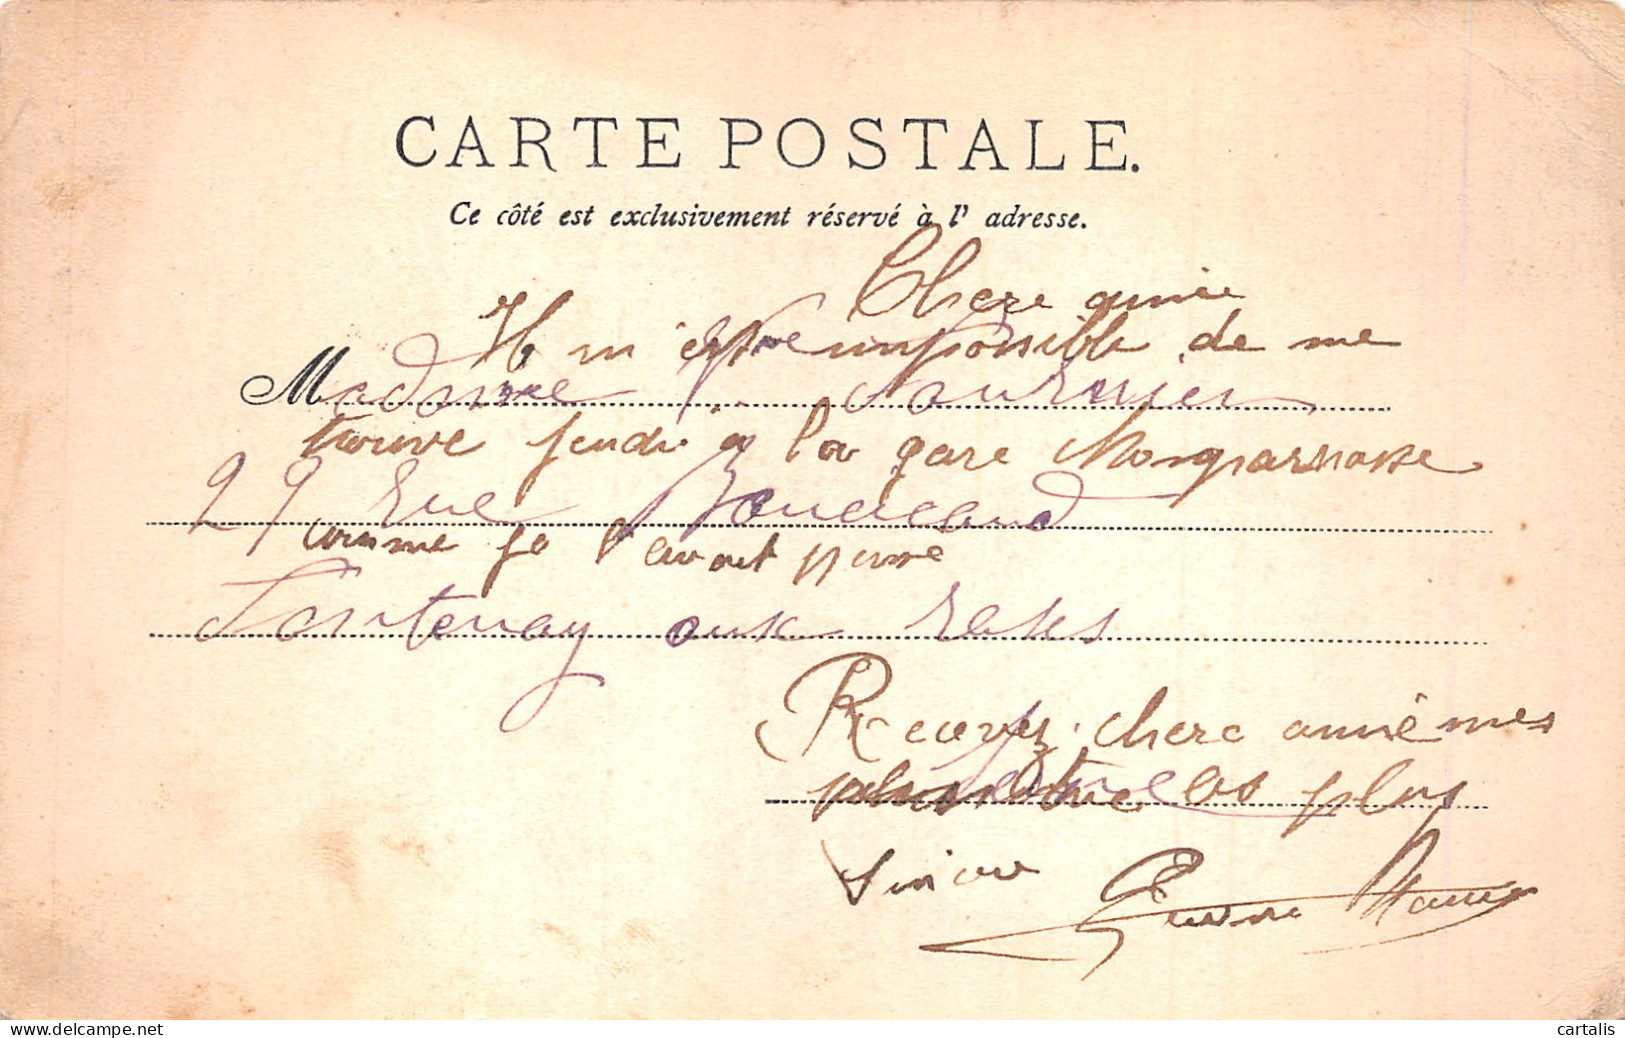 CARTE POSTALE.
Ce côté est exclusivement réservé à l' adresse.
Chere amie
Il m'est impossible de me
Madame Fournier
trouve jeudi a la gare Monparnasse
29 rue Boucicaud
comme je l'avait
Fontenay aux roses
Recevez chere amiê mes
les plus
sincere
cartalis
www.delcampe.net